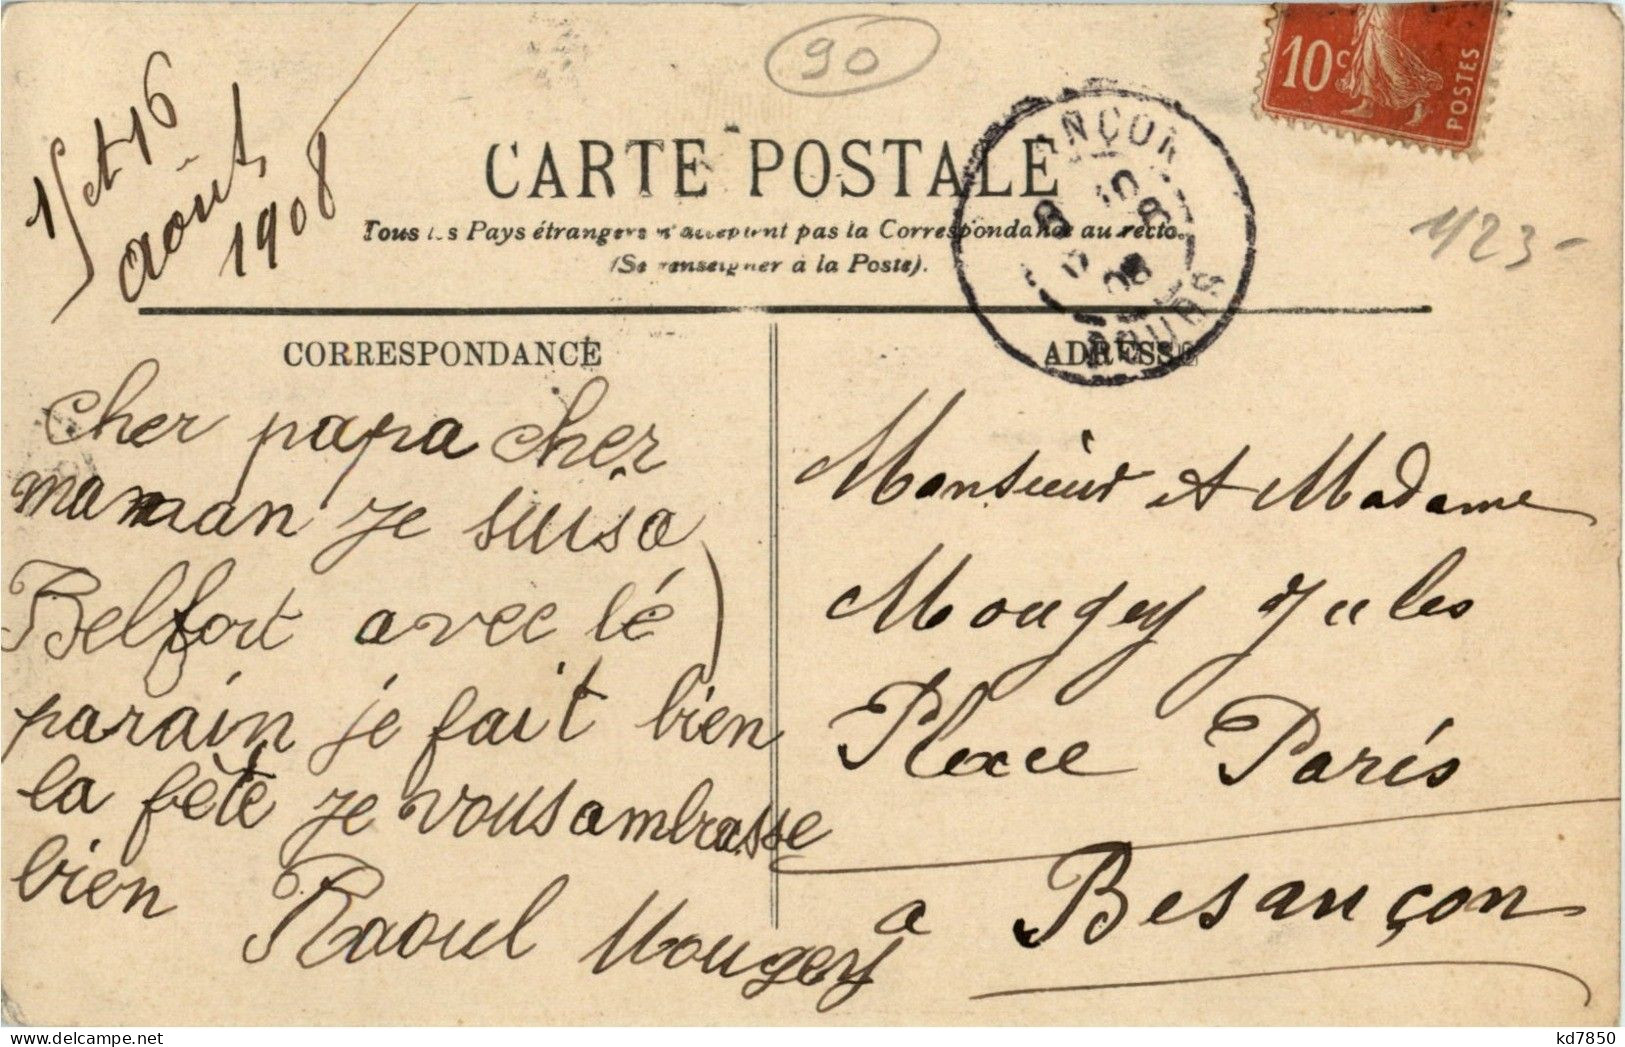 15 et 16
août
1908
90
10c
POSTES
CARTE POSTALE
Tous les Pays étrangers n'acceptent pas la Correspondance au recto.
(Se renseigner à la Poste).
1/23-
CORRESPONDANCE
ADRESSE
cher papa cher
maman je suis a
Belfort avec lé
parain je fait bien
la fête je vous ambrasse
bien
Raoul Mougey
Monsieur et Madame
Mougey Jules
Place Paris
a Besançon
delcampe.net
kd7850